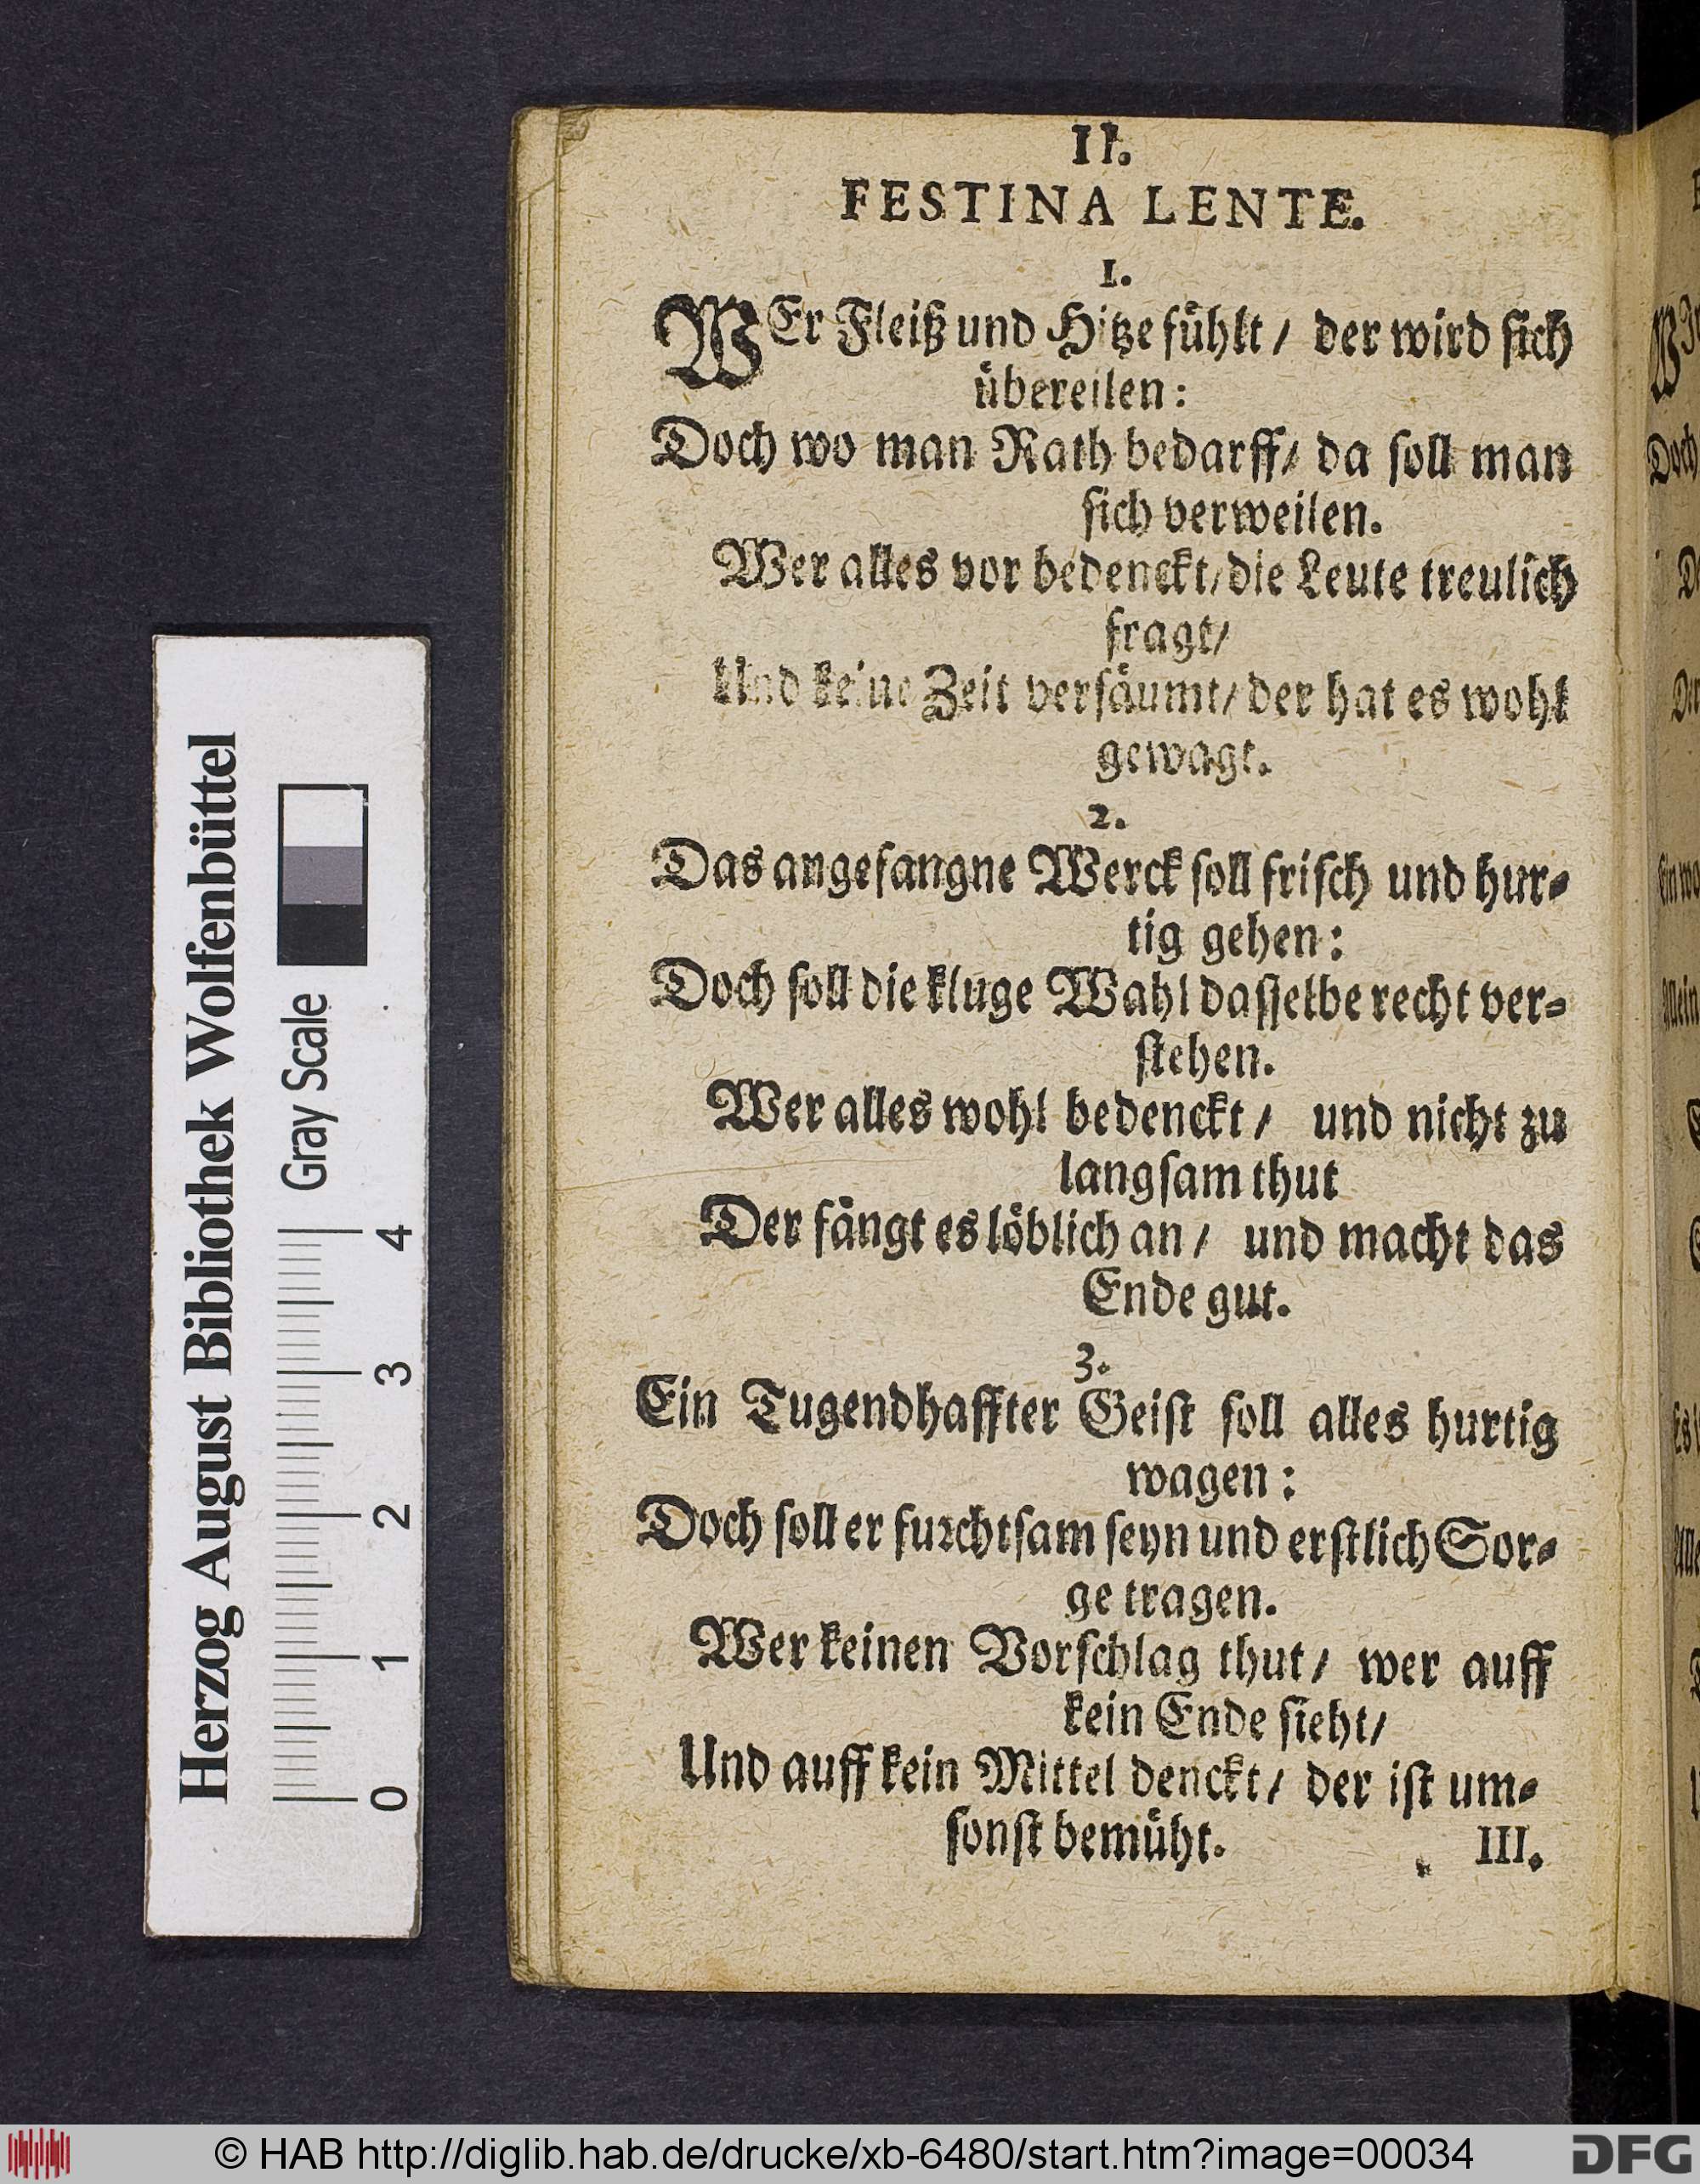 II.
FESTINA LENTE.
1.
WEr Fleiß und Hitze fühlt / der wird sich
übereilen:
Doch wo man Rath bedarff / da soll man
sich verweilen.
Wer alles vor bedenckt / die Leute treulich
fragt /
Und keine Zeit versäumt / der hat es wohl
gewagt.
2.
Das angefangne Werck soll frisch und hur⸗
tig gehen:
Doch soll die kluge Wahl dasselbe recht ver⸗
stehen.
Wer alles wohl bedenckt / und nicht zu
langsam thut
Der fängt es löblich an / und macht das
Ende gut.
3.
Ein Tugendhaffter Geist soll alles hurtig
wagen:
Doch soll er furchtsam seyn und erstlich Sor⸗
ge tragen.
Wer keinen Vorschlag thut / wer auff
kein Ende sieht /
Und auff kein Mittel denckt / der ist um⸗
sonst bemüht.
III.
Doch
Herzog August Bibliothek Wolfenbüttel
Gray Scale
0 1 2 3 4
© HAB http://diglib.hab.de/drucke/xb-6480/start.htm?image=00034
DFG